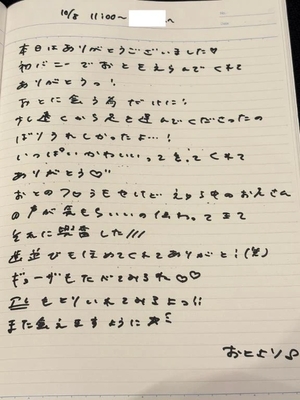 10/8 11:00〜 へ
本日はありがとうございました♡
初バニーでおとをえらんでくれて
ありがとうっ!
おとに会う為だけに!
すし遠くから足を運んでくださったの
ばりうれしかったよ…!
いっぱいかわいいって言ってくれて
ありがとう♡
おとの
の声が気もちいいの伝わってきて
それに興奮した///
歯並びもほめてくれてありがと!(笑)
ギョーザもたべてみるね♡♡
もとりいれてみるよっ!!
また会えますように☆ミ
おとより